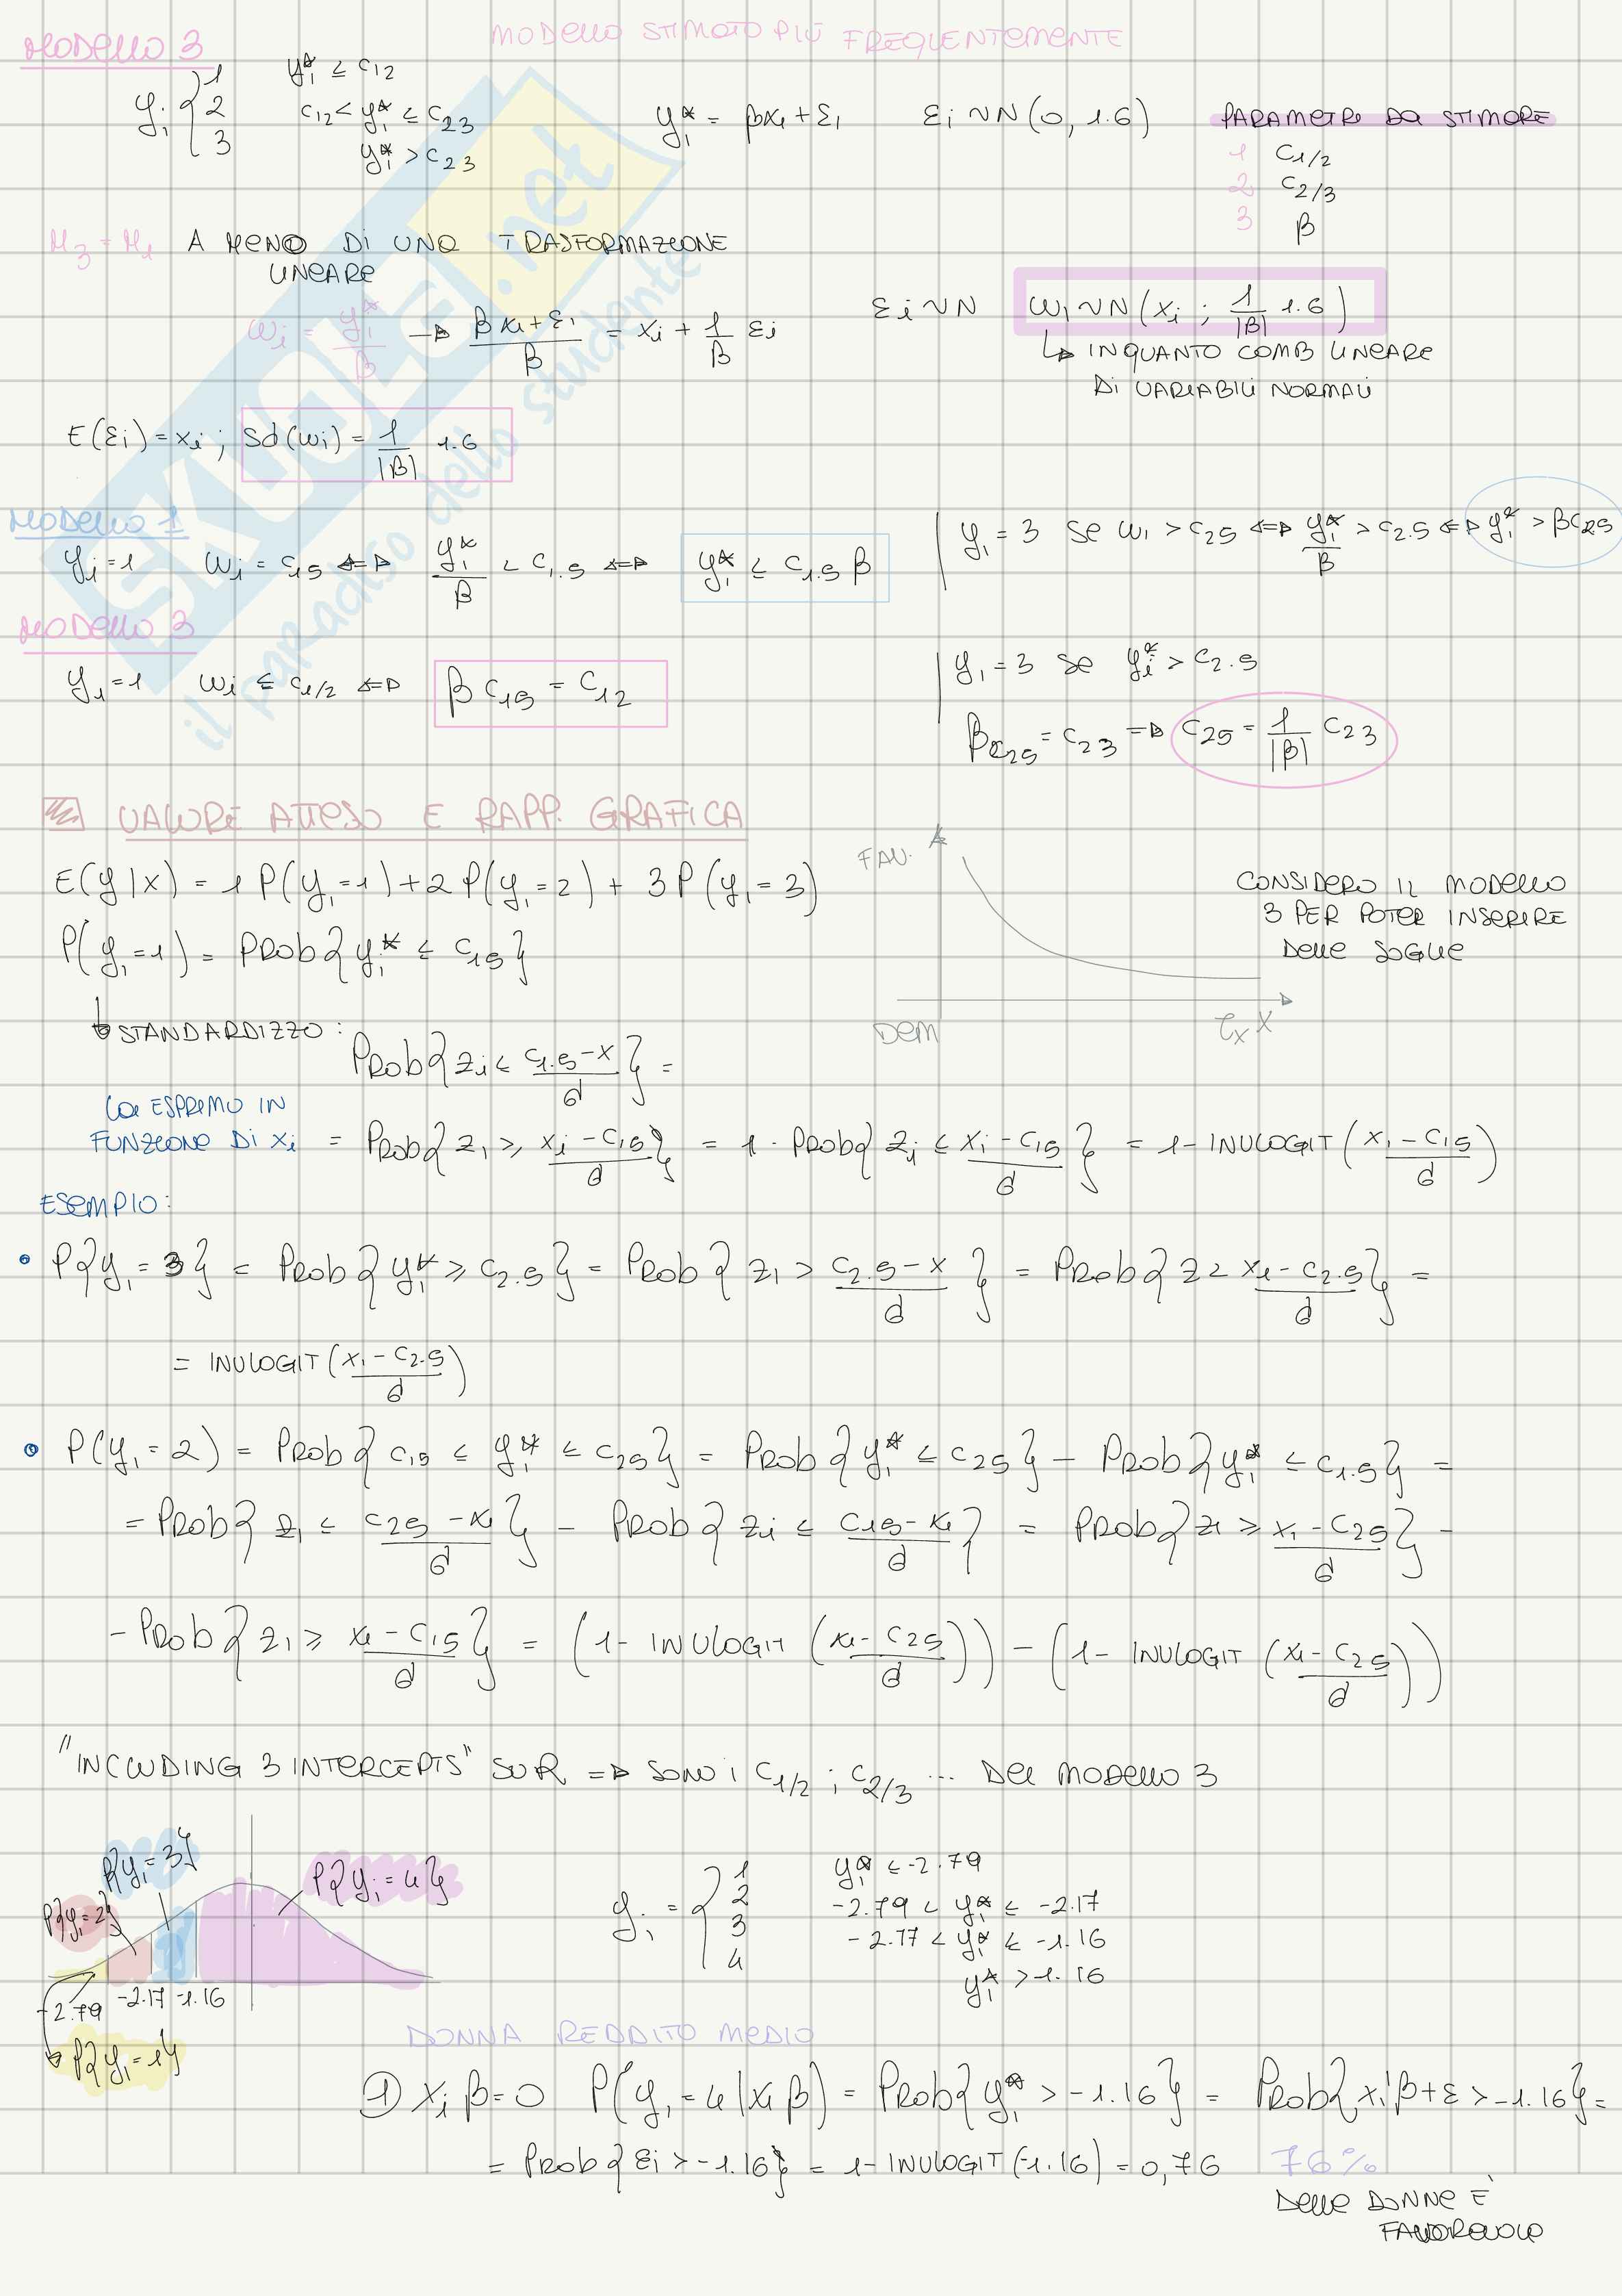 MODELLO 3
MODELLO STIMATO PIÙ FREQUENTEMENTE
yi { 1 yi* ≤ c12
2 c12 < yi* ≤ c23
3 yi* > c23
yi* = βxi + εi εi ~ N(0, 1.6)
PARAMETRI DA STIMARE
1 C1/2
2 C2/3
3 β
M3 = M1 A MENO DI UNA TRASFORMAZIONE
LINEARE
wi = yi*/β → (βxi + εi)/β = xi + 1/β εi
εi ~ N wi ~ N(xi ; 1/|β| 1.6)
↳ INQUANTO COMB LINEARE
DI VARIABILI NORMALI
E(εi) = xi ; Sd(wi) = 1/|β| 1.6
MODELLO 1
yi = 1 wi = c15 ⇔ yi*/β < c1.5 ⇔ yi* ≤ c1.5 β
yi = 3 se wi > c25 ⇔ yi*/β > c2.5 ⇔ yi* > βc25
MODELLO 3
yi = 1 wi ≤ c1/2 ⇔ β c15 = c12
yi = 3 se yi* > c2.5
βc25 = c23 ⇒ c25 = 1/|β| c23
VALORE ATTESO E RAPP. GRAFICA
E(y|x) = 1 P(yi=1) + 2 P(yi=2) + 3 P(yi=3)
FAV.
DEM
CONSIDERO IL MODELLO
3 PER POTER INSERIRE
DELLE SOGLIE
P(yi=1) = PROB{yi* ≤ c15}
↳ STANDARDIZZO:
PROB{zi ≤ (c1.5 - x)/σ} =
LA ESPRIMO IN
FUNZIONE DI xi = PROB{zi ≥ (xi - c15)/σ} = 1 - PROB{zi ≤ (xi - c15)/σ} = 1 - INVLOGIT((xi - c15)/σ)
ESEMPIO:
• P{yi = 3} = PROB{yi* ≥ c2.5} = PROB{zi > (c2.5 - x)/σ} = PROB{z < (xi - c2.5)/σ} =
= INVLOGIT((xi - c2.5)/σ)
• P(yi = 2) = PROB{c15 ≤ yi* ≤ c25} = PROB{yi* ≤ c25} - PROB{yi* ≤ c1.5} =
= PROB{zi ≤ (c25 - xi)/σ} - PROB{zi ≤ (c15 - xi)/σ} = PROB{zi ≥ (xi - c25)/σ} -
- PROB{zi ≥ (xi - c15)/σ} = (1 - INVLOGIT((xi - c25)/σ)) - (1 - INVLOGIT((xi - c25)/σ))
"INCLUDING 3 INTERCEPTS" SU R ⇒ SONO i C1/2 ; C2/3 ... DEL MODELLO 3
P{yi = 3}
P{yi = 2}
P{yi = 4}
-2.79 -2.17 -1.16
P{yi = 1}
yi = { 1 yi* ≤ -2.79
2 -2.79 < yi* ≤ -2.17
3 -2.17 < yi* ≤ -1.16
4 yi* > -1.16
DONNA REDDITO MEDIO
① xi β = 0 P(yi = 4 | xi β) = PROB{yi* > -1.16} = PROB{xi'β + ε > -1.16} =
= PROB{εi > -1.16} = 1 - INVLOGIT(-1.16) = 0,76 76%
DELLE DONNE E'
FAVOREVOLE
SKUOLA.net
il paradiso dello studente